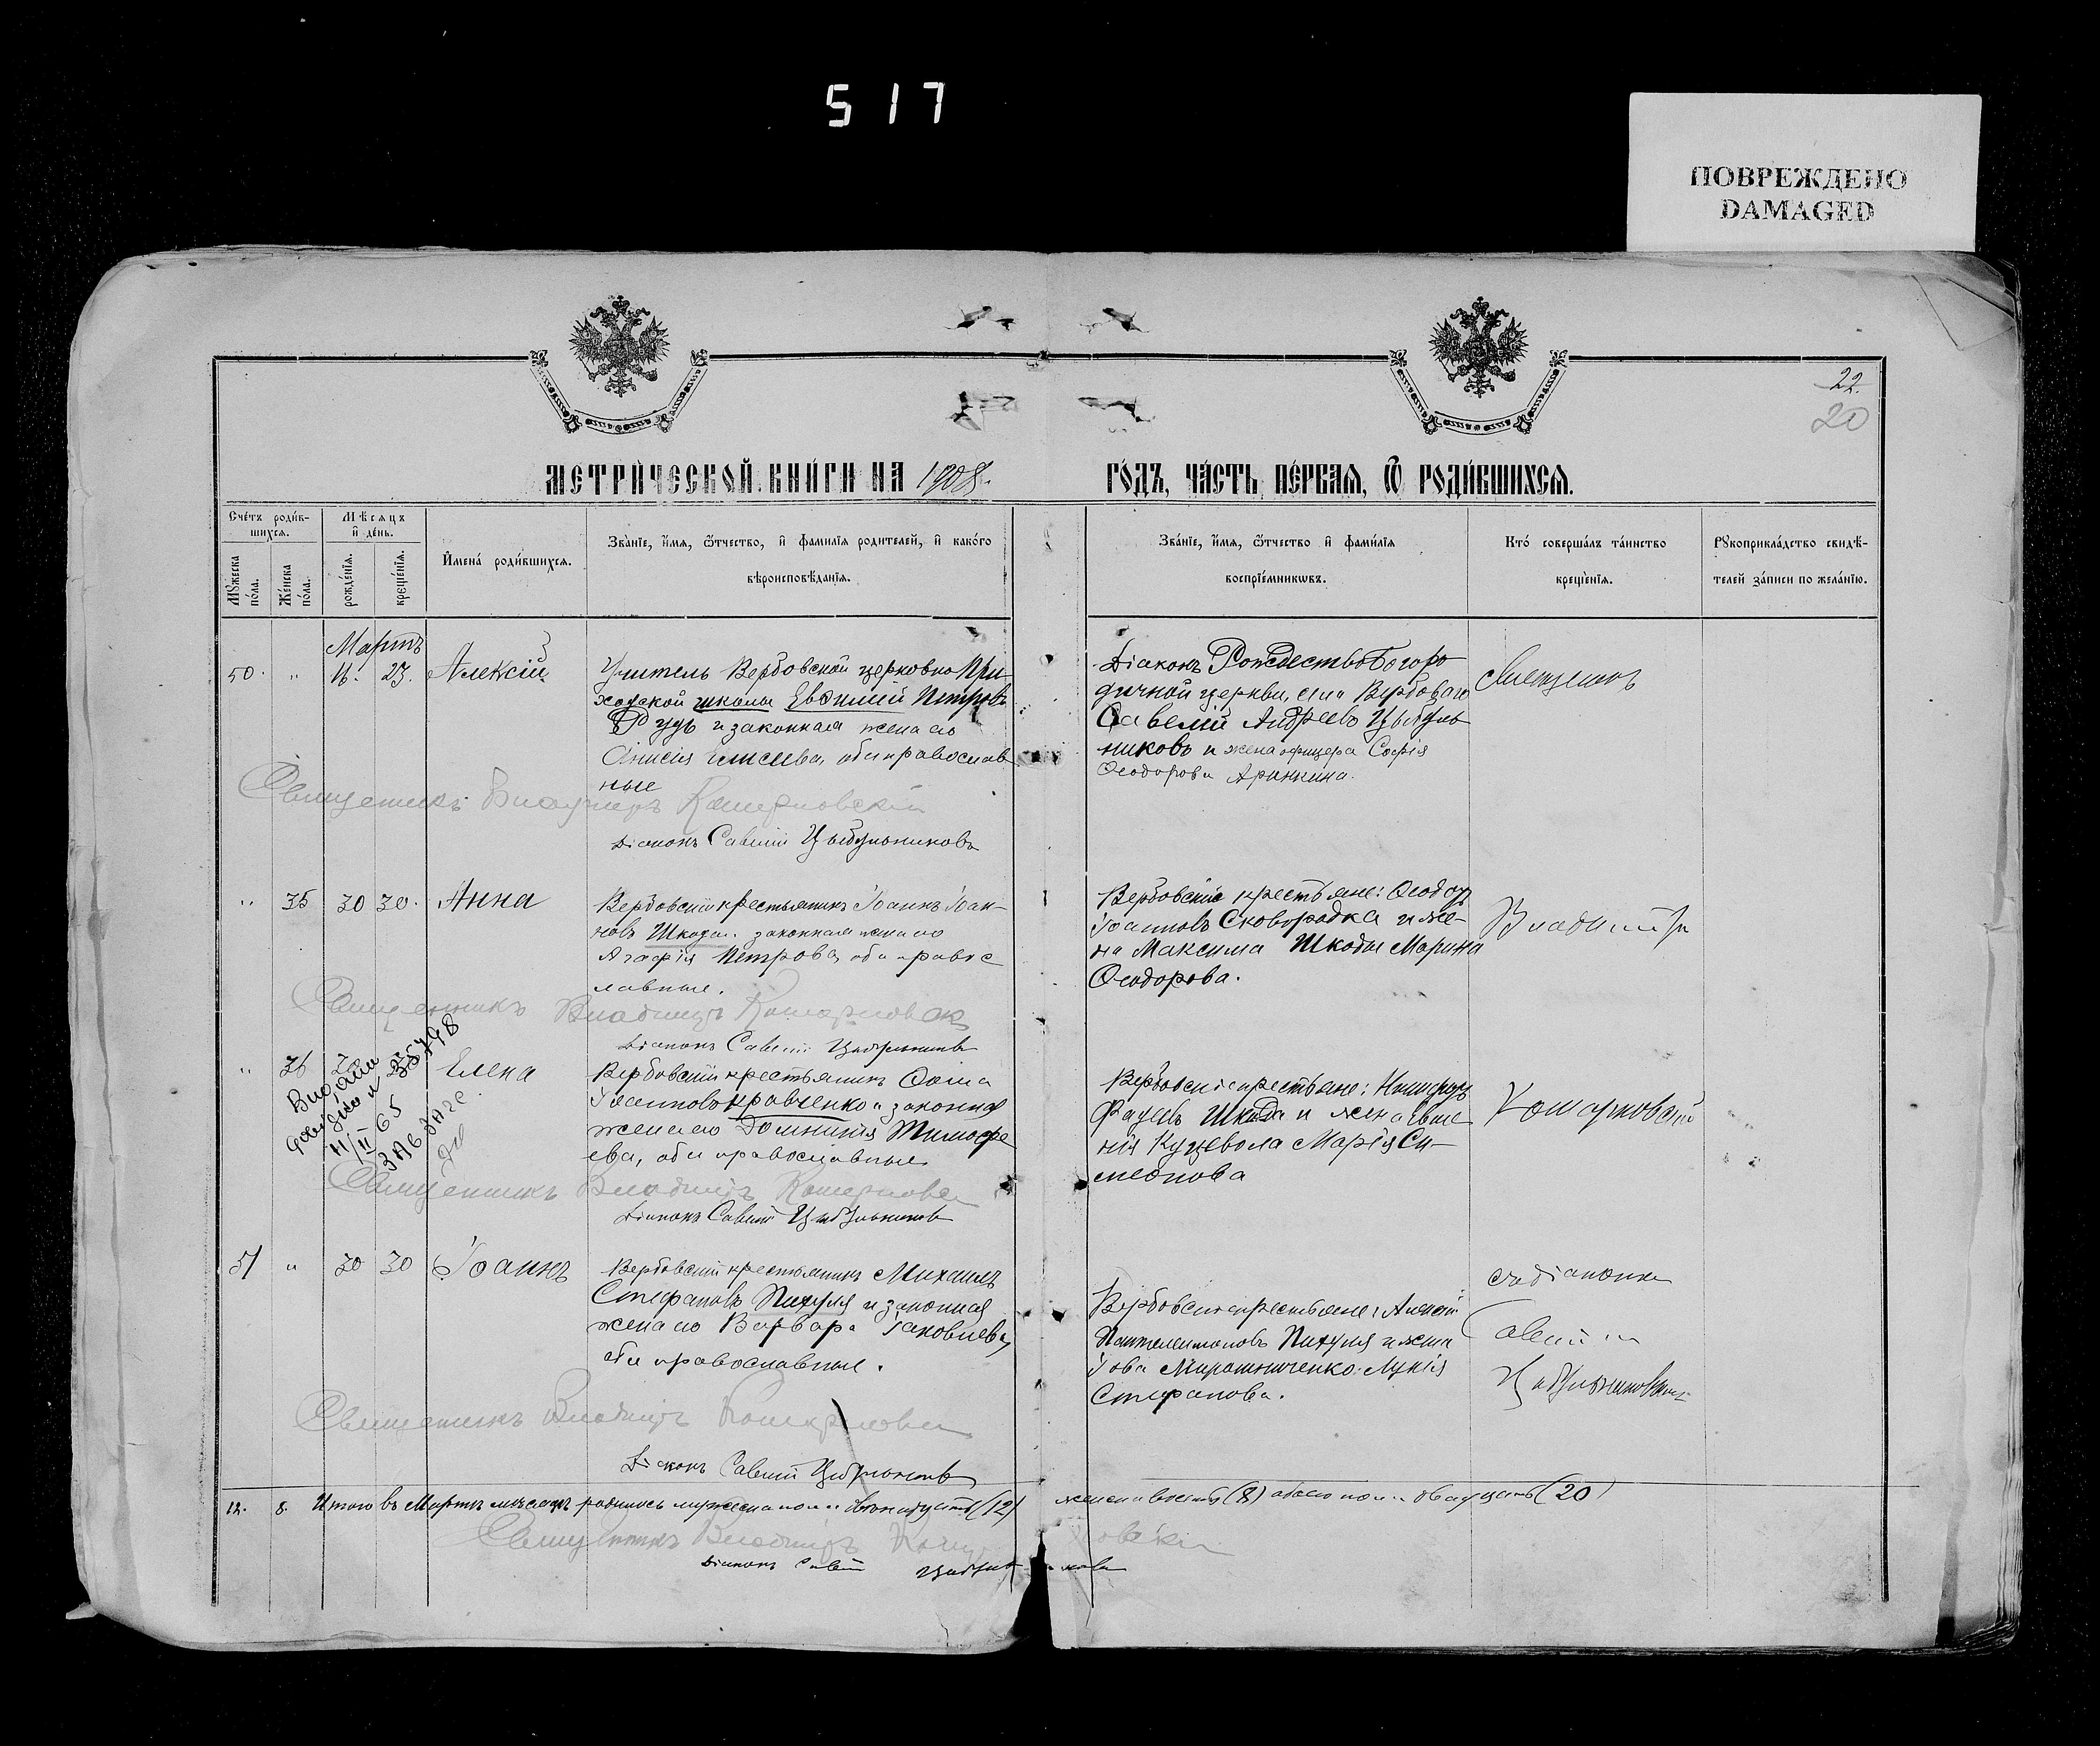 517
ПОВРЕЖДЕНО
DAMAGED
22.
20
МЕТРИ́ЧЕСКОЙ КНИ́ГИ НА 1908.
ГО́ДЪ, ЧА́СТЬ ПЕ́РВАЯ, Ѿ РОДИ́ВШИХСЯ.
Сче́тъ роди́в-
шихся.
Мѣсяцъ
и҆ де́нь.
Мꙋ́жеска по́ла.
Же́нска по́ла.
рожде́нїѧ.
креще́нїѧ.
И҆мена̀ роди́вшихся.
Зва́нїе, и҆́мѧ, ѻ҆́тчество, и҆ фами́лїѧ роди́телей, и҆ како́го
вѣроисповѣ́данїѧ.
Зва́нїе, и҆́мѧ, ѻ҆́тчество и҆ фами́лїѧ
воспрїе́мникѡвъ.
Кто̀ соверша́лъ та́инство
креще́нїѧ.
Рꙋкоприкла́дство свидѣ́-
телей за́писи по жела́нїю.
Мартъ
50. " 16. 23. Алексій
Учитель Вербовской церковно при-
ходской школы Евѳимій Петровъ
Рудь и законная жена его
Анисія, оба православ
ные
Священникъ Владиміръ Комарновскій
Діаконъ Савелій Цыбульниковъ
Діаконъ Рождество Богоро
дичной церкви, села Вербоваго
Савелій Андреевъ Цыбуль
никовъ и жена офицера Софія
Ѳеодорова
Священникъ
" 35 30 30. Анна
Вербовскій крестьянинъ Іоаннъ Іоан-
новъ Шкода и законная жена его
Агафія Петрова, оба правос
лавные.
Священникъ Владиміръ Комарновскій
Діаконъ Савелій Цыбульниковъ
Вербовскіе крестьяне: Ѳеодоръ
Іоанновъ Сковородка и же-
на Максима Шкоды Марина
Ѳеодорова.
Владиміръ
" 36 Елена
Выдано
11/II 65
ЗАГС
Вербовскій крестьянинъ Ѳома
Іоанновъ Кравченко и законная
жена его Домникія Тимофе
ева, оба православные
Священникъ Владиміръ Комарновскій
Діаконъ Савелій Цыбульниковъ
Вербовскіе крестьяне: Никифоръ
Шкода и жена Евме
нія Куцевола Марія Си-
меонова
Комарновскій
51 " 30 30 Іоаннъ
Вербовскій крестьянинъ Михаилъ
Стефановъ Пихуля и законная
жена его Варвара Іаковлева,
оба православные.
Священникъ Владиміръ Комарновскій
Діаконъ Савелій Цыбульниковъ
Вербовскіе крестьяне: Алексій
Пантелеимоновъ Пихуля и жена
Іова Мирошниченко Лукія
Стефанова.
съ діакономъ
Савеліемъ
Цыбульниковымъ
12. 8. Итого въ Мартѣ мѣсяцѣ родилось мужеска пола двѣнадцать (12) женска восемь (8) обоего пола двадцать (20)
Священникъ Владиміръ Комарновскій
Діаконъ Савелій Цыбульниковъ